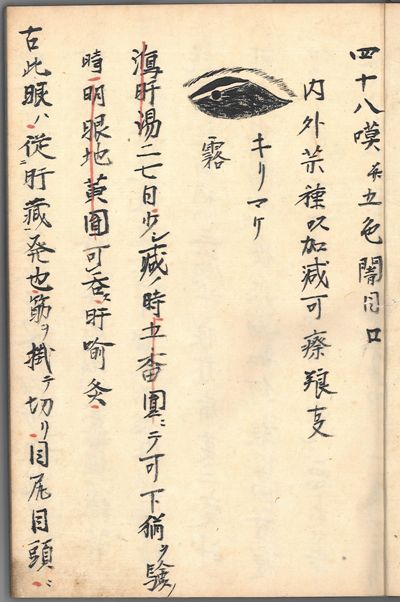 四十八嗼并五色闇目口
内外種以加減可療
キリマケ
霧
瀉肝湯二七日少シ減ノ時五番圓ニテ可下猶ヲ験ノ
時明眼地黄圓可呑ス肝喩灸
右此眼ハ従肝蔵発也筋ヲ掛テ切リ目尾目頭ニ